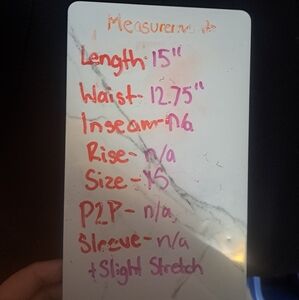 Measurements
Length-15"
Waist-12.75"
Inseam-n/a
Rise-n/a
Size-15
P2P-n/a
Sleeve-n/a
+Slight Stretch